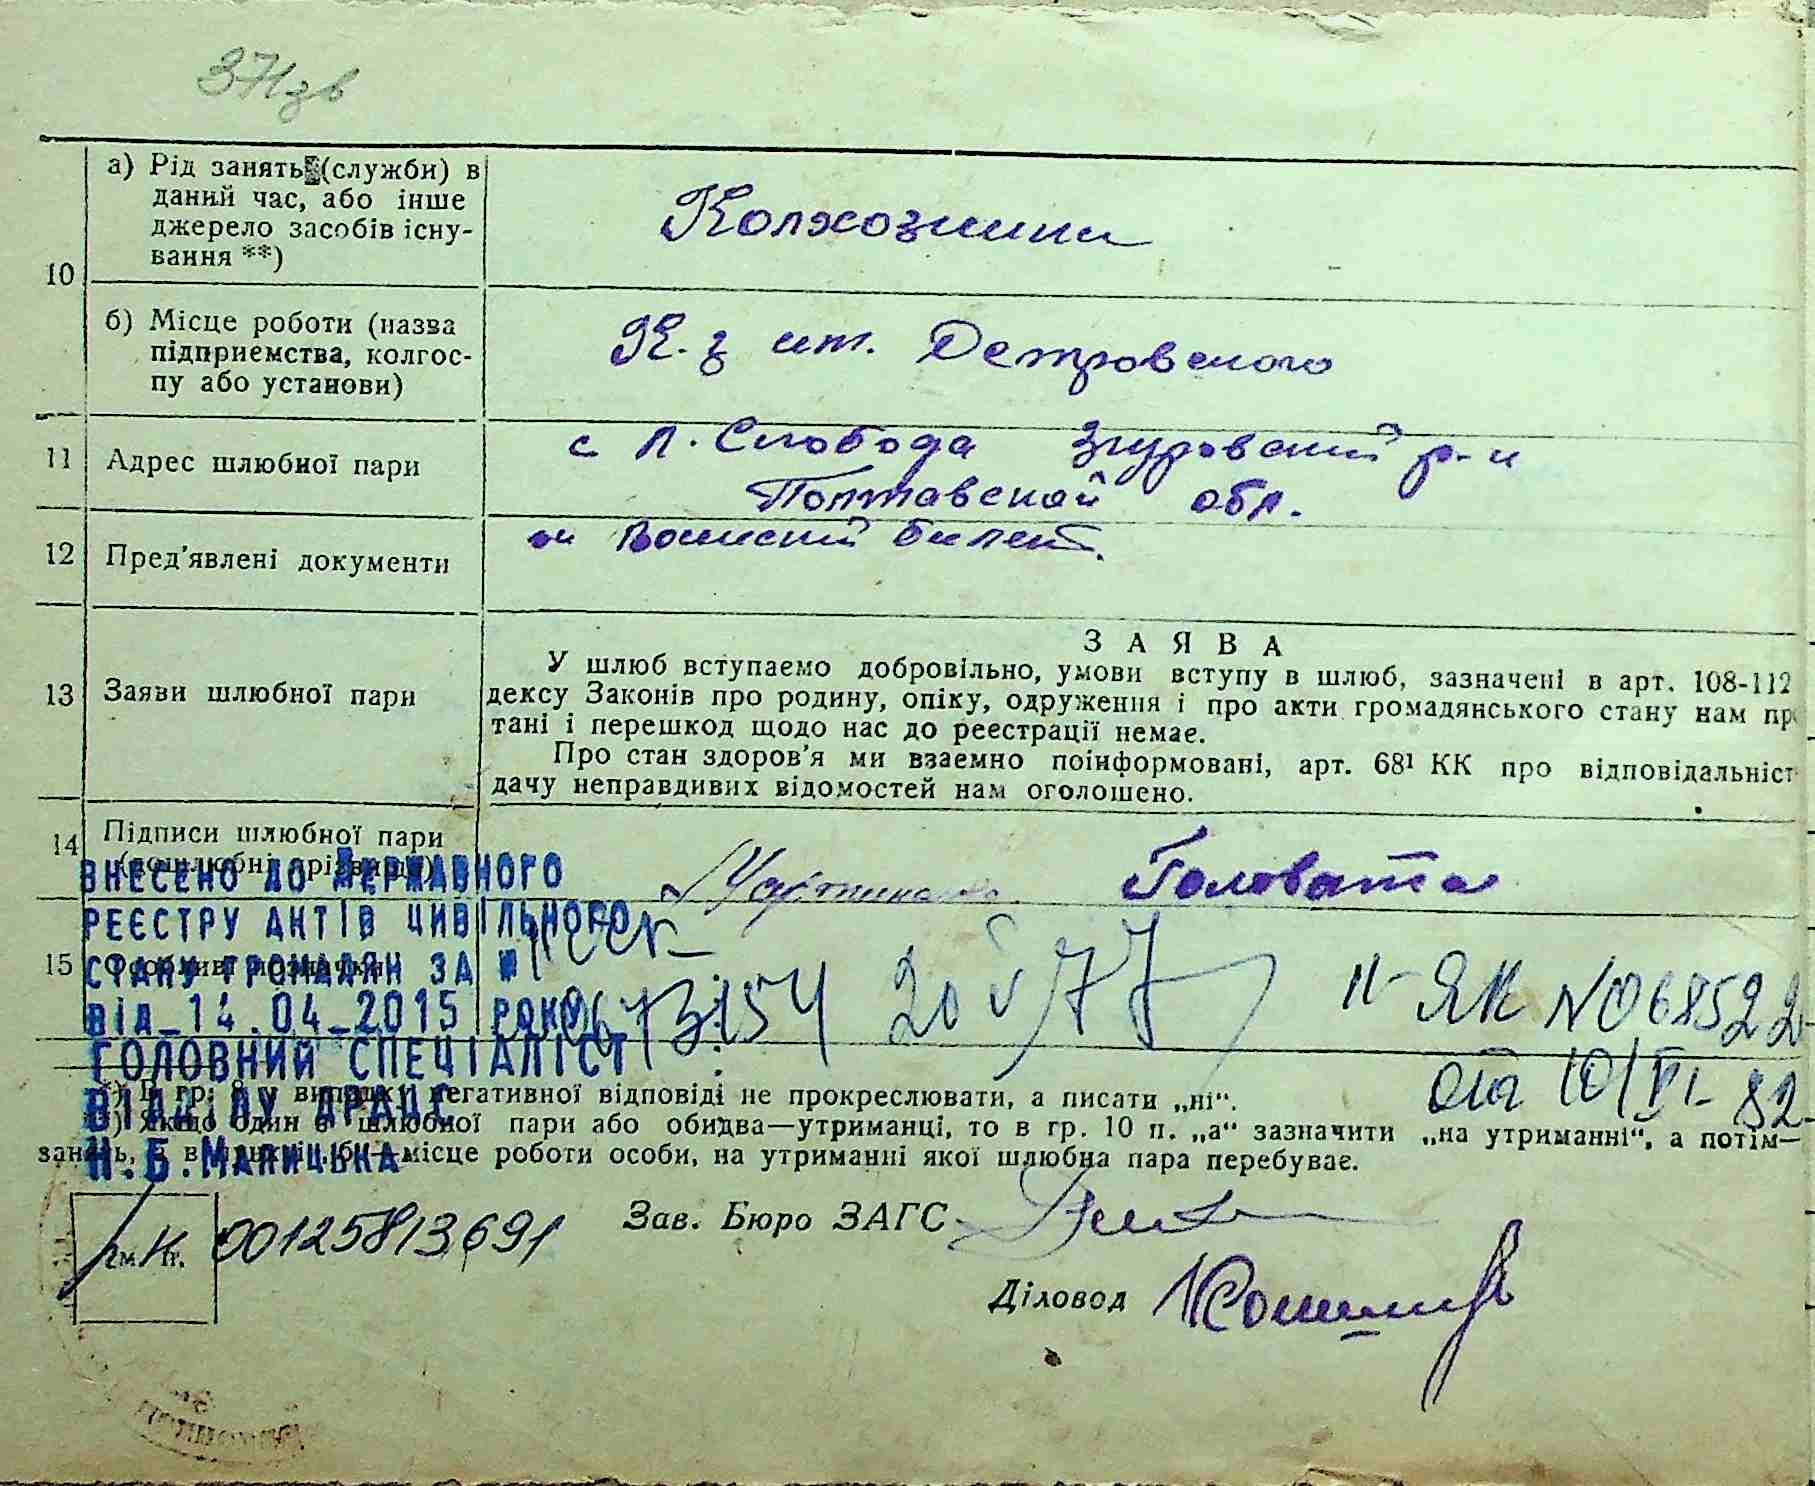 371зв
а) Рід занять (служби) в
даний час, або інше
джерело засобів існу-
вання **)
10
Колхозники
б) Місце роботи (назва
підприємства, колгос-
пу або установи)
К-з им. Петровского
11
Адрес шлюбної пари
с Л. Слобода Згуровский р-н
Полтавской обл.
12
Пред'явлені документи
Воинский билет.
13
Заяви шлюбної пари
ЗАЯВА
У шлюб вступаємо добровільно, умови вступу в шлюб, зазначені в арт. 108-112
дексу Законів про родину, опіку, одруження і про акти громадянського стану нам пр
тані і перешкод щодо нас до реєстрації немає.
Про стан здоров'я ми взаємно поінформовані, арт. 68¹ КК про відповідальніст
дачу неправдивих відомостей нам оголошено.
14
Підписи шлюбної пари
(дошлюбні прізвища)
Головата
ВНЕСЕНО ДО ДЕРЖАВНОГО
РЕЄСТРУ АКТІВ ЦИВІЛЬНОГО
СТАНУ ГРОМАДЯН ЗА №
ВІД_14.04_2015 РОКУ
ГОЛОВНИЙ СПЕЦІАЛІСТ
ВІДДІЛУ ДРАЦС
Н.Б.МАЛИЦЬКА
15
Особливі позначки
20 V 77
II-ЯК №068522
от 10/VI-82
*) В гр. 8 у випадку негативної відповіді не прокреслювати, а писати „ні“.
**) Якщо один з шлюбної пари або обидва—утриманці, то в гр. 10 п. „а“ зазначити „на утриманні“, а потім—
занять, а в п. б—місце роботи особи, на утриманні якої шлюбна пара перебуває.
00125813691
Зав. Бюро ЗАГС
Діловод